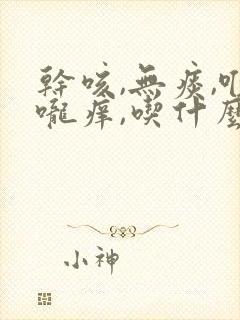 幹咳,無痰,
嚨痒,喫什麼
小神